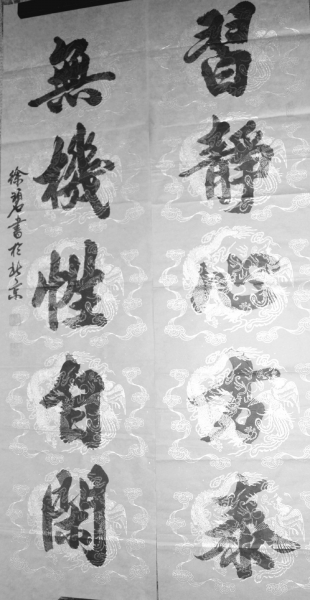 習靜心方泰
無機性自閑
徐碧書於北京